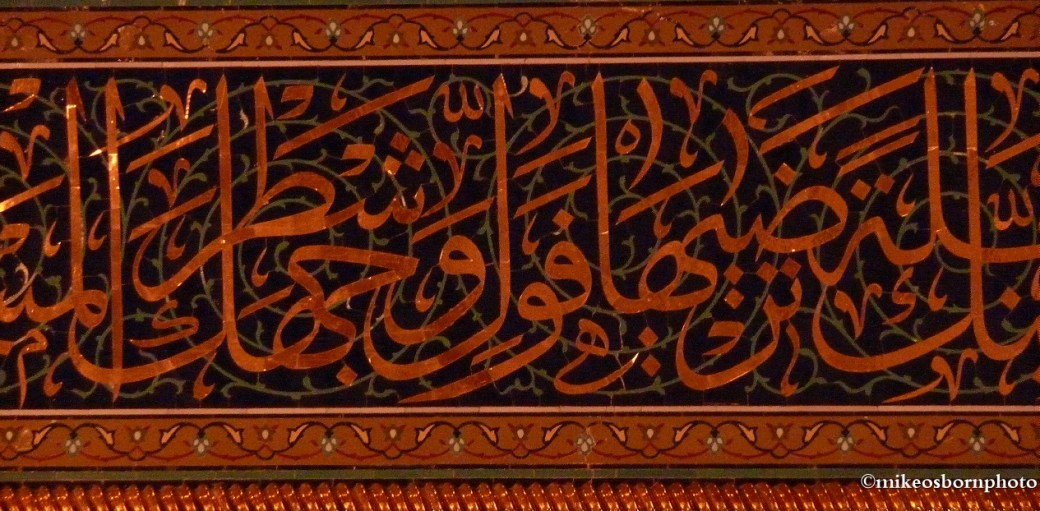 نَّكَ قِبْلَةً تَرْضٰيهَا فَوَلِّ وَجْهَكَ شَطْرَ الْمَسْ
©mikeosbornphoto